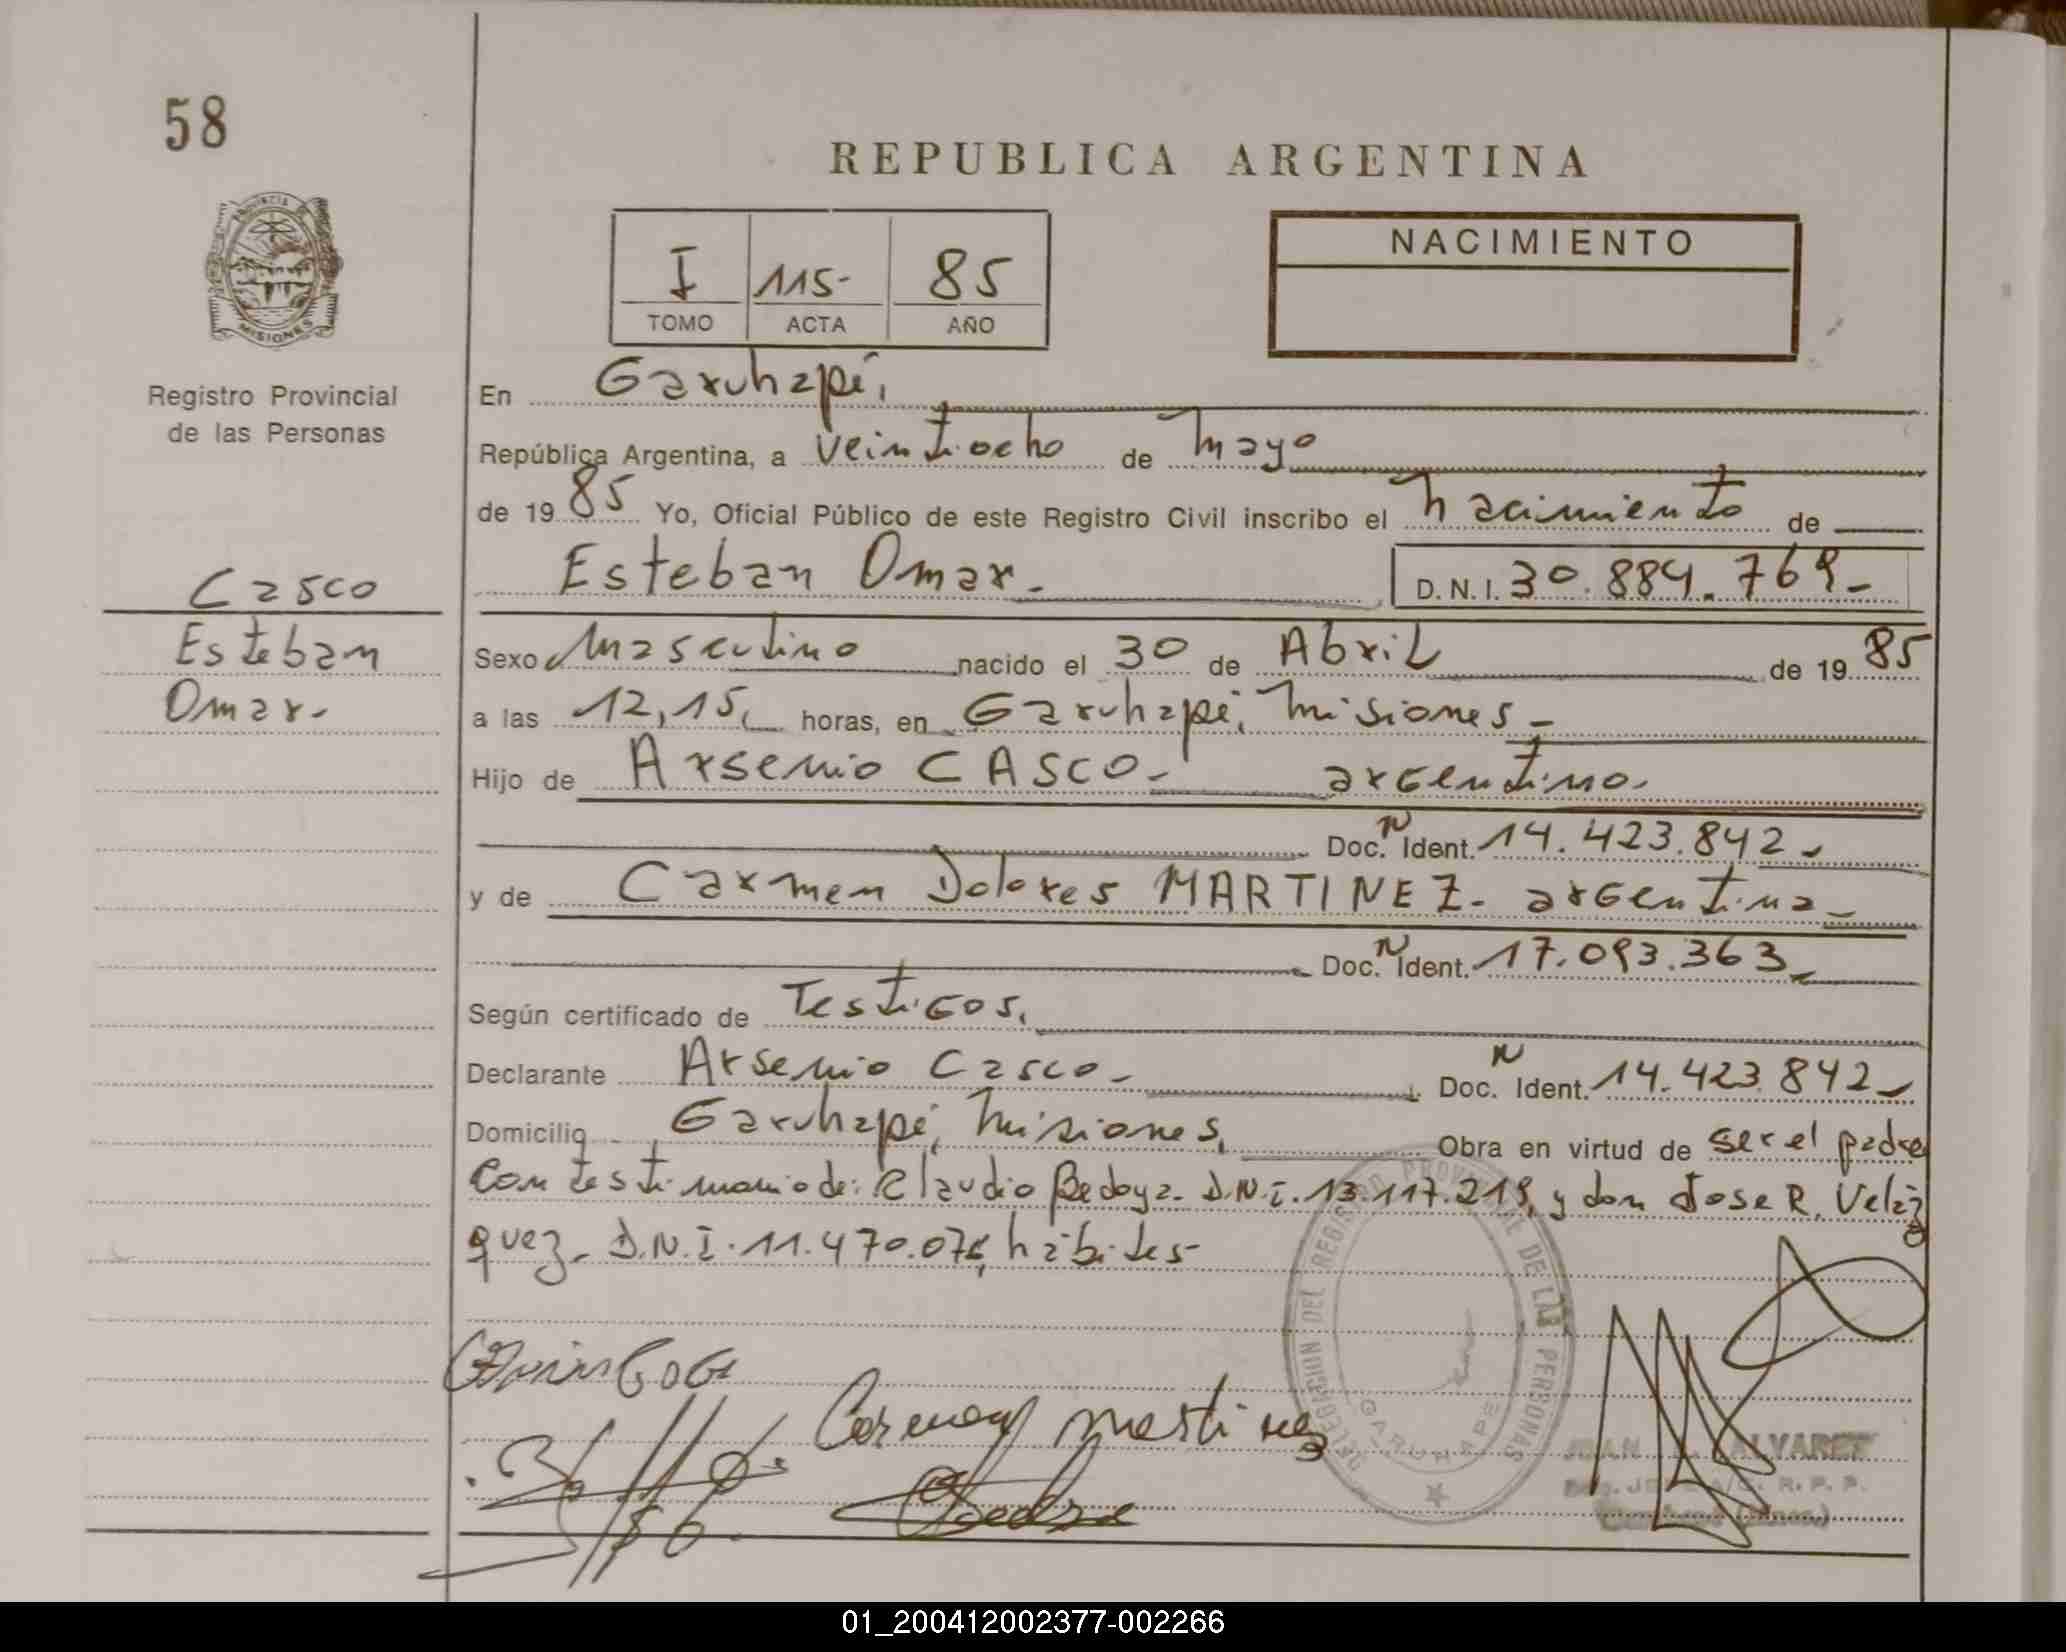 58
REPUBLICA ARGENTINA
I 115- 85
TOMO ACTA AÑO
NACIMIENTO
PROVINCIA DE
MISIONES
Registro Provincial
de las Personas
En Garuhapé,
República Argentina, a veintiocho de mayo
de 1985 Yo, Oficial Público de este Registro Civil inscribo el nacimiento de
Esteban Omar.- D.N.I. 30.884.769-
Casco
Esteban
Omar.-
Sexo masculino nacido el 30 de Abril de 1985
a las 12,15, horas, en Garuhapé, Misiones-
Hijo de Arsenio CASCO- argentino.
Doc. N Ident. 14.423.842-
y de Carmen Dolores MARTINEZ- argentina-
Doc. N Ident. 17.093.363-
Según certificado de Testigos.
Declarante Arsenio Casco- Doc. N Ident. 14.423.842-
Domicilio Garuhapé, Misiones, Obra en virtud de ser el padre
Con testimonio de: Claudio Bedoya. D.N.I. 13.117.219, y don Jose R. Velaz
quez- D.N.I. 11.470.076, habites-
DELEGACION DEL REGISTRO PROVINCIAL DE LAS PERSONAS
GARUHAPE
Carmen martinez
JUAN ALVAREZ
R. P. P.
01_200412002377-002266